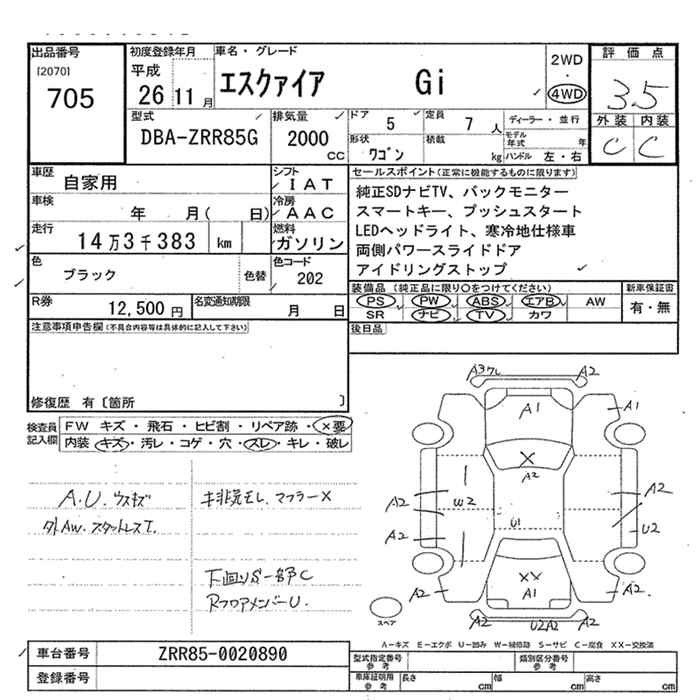 出品番号
[2070]
705
初度登録年月
平成
26 11月
車名・グレード
エスクァイア Gi
2WD
・
4WD
評価点
3.5
外装 内装
C C
型式
DBA-ZRR85G
排気量
2000
CC
ドア 5
定員 7 人
形状 ワゴン
積載 kg
ディーラー・並行
モデル年式 年
ハンドル 左・右
車歴 自家用
シフト
IAT
車検 年 月( 日)
冷房
AAC
走行 14万3千383 km
燃料
ガソリン
色 ブラック 色替
色コード
202
R券 12,500円
名変通知期限 月 日
セールスポイント(正常に機能するものに限ります)
純正SDナビTV、バックモニター
スマートキー、プッシュスタート
LEDヘッドライト、寒冷地仕様車
両側パワースライドドア
アイドリングストップ
装備品(純正品に限り○をつけてください)
新車保証書
PS PW ABS エアB AW
SR ナビ TV カワ
有・無
後日品
注意事項申告欄(不具合内容等は具体的に記入して下さい)
修復歴 有〔箇所 〕
検査員記入欄
FW キズ・飛石・ヒビ割・リペア跡・×要
内装 キズ・汚レ・コゲ・穴・スレ・キレ・破レ
A.U.ウスキズ
外AW.スタットレスT.
マフラー×
下回りS一部C
RフロアメンバーU.
A3 ワレ A2
A1 A1
×
A2
A2 W2 A2
U1 U2
A2
××
A1
A2 A2
A2 U2A2 A2
スペア
A-キズ E-エクボ U-凹み W-補修跡 S-サビ C-腐食 XX-交換済
車台番号 ZRR85-0020890
登録番号
型式指定番号
参考
類別区分番号
参考
車庫証明用
参考
長さ cm 幅 cm 高さ cm